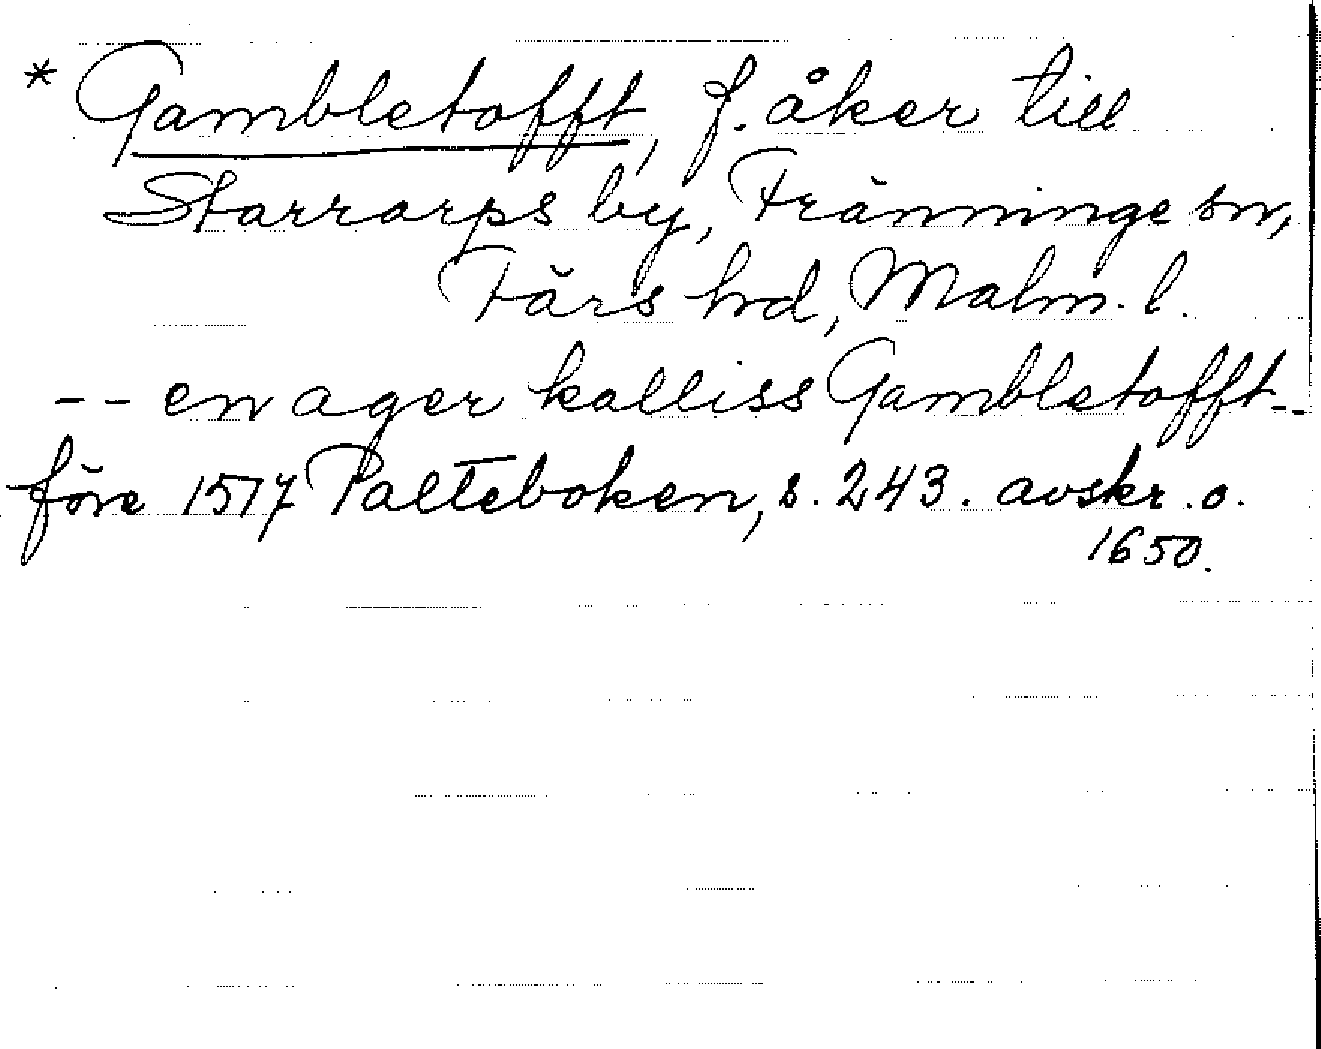 * Gambletofft, f. åker till
Starrarps by, Tränninge sn,
Färs hrd, Malm. l.
-- en ager kalliss Gambletofft--
före 1517 Palteboken, s. 243. avskr. o.
1650.